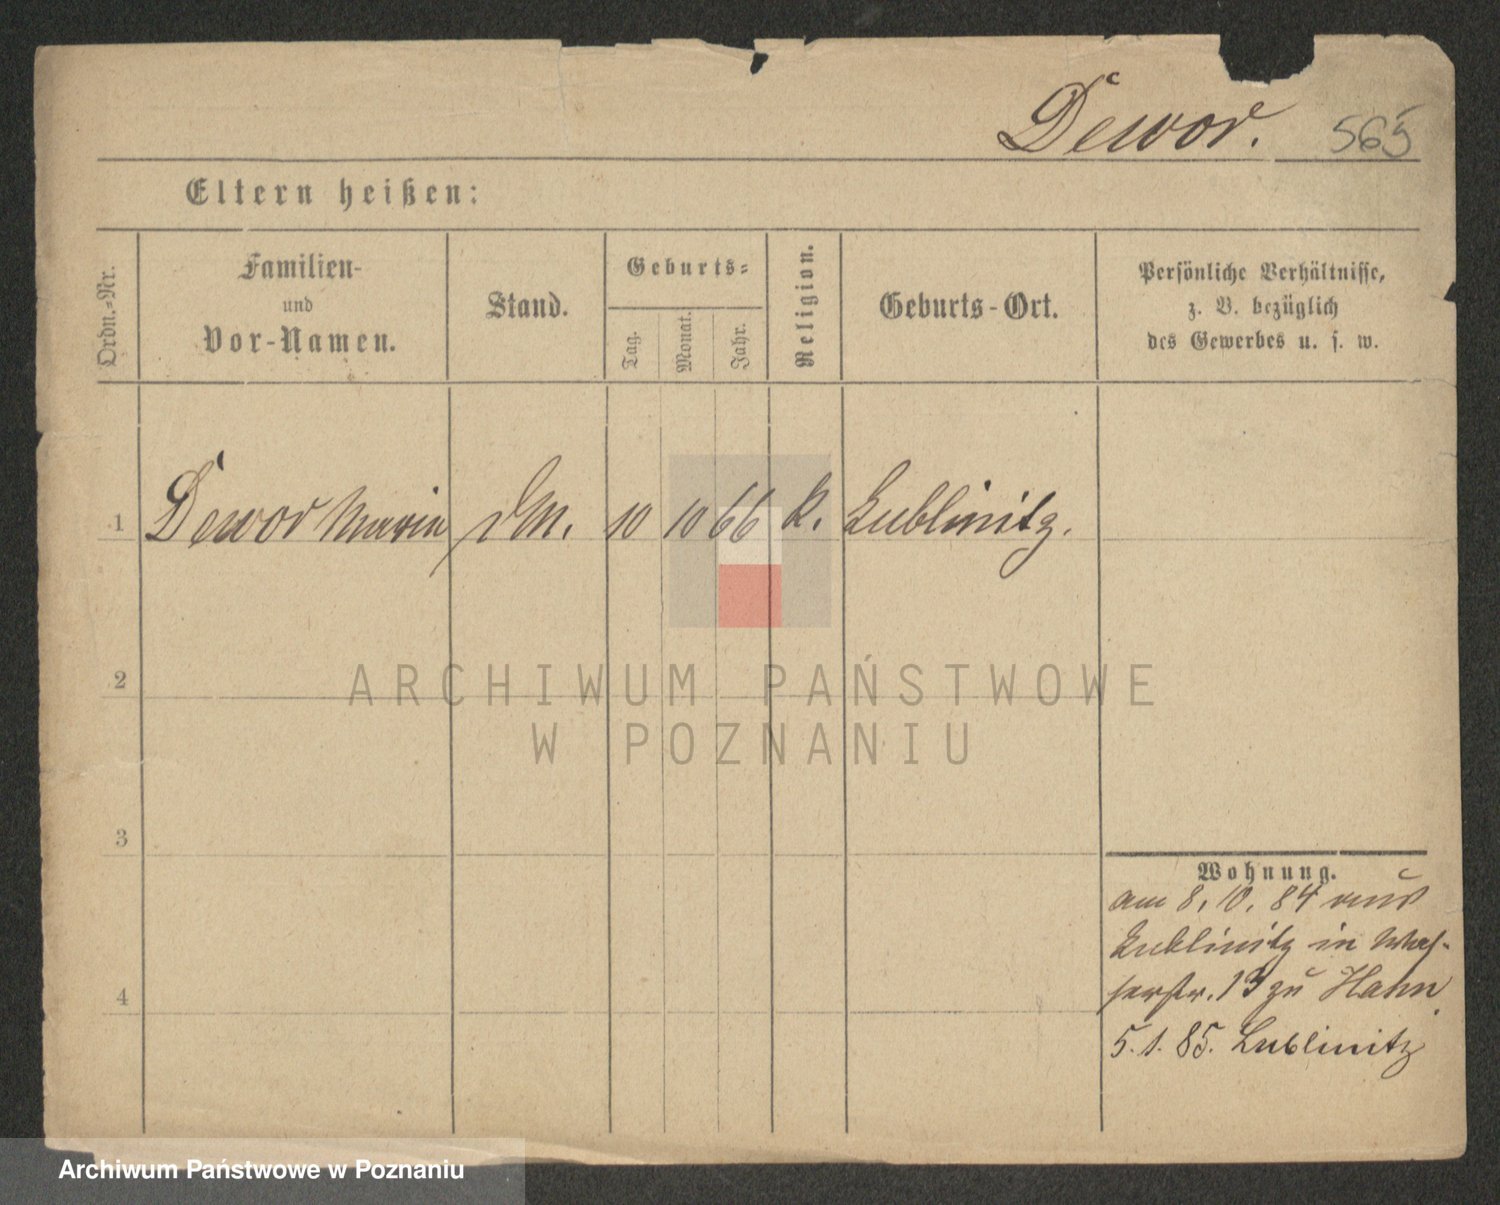 Dewor. 565
Eltern heißen:
Ordn.-Nr.
Familien-
und
Vor-Namen.
Stand.
Geburts-
Tag.
Monat.
Jahr.
Religion.
Geburts-Ort.
Persönliche Verhältnisse,
z. B. bezüglich
des Gewerbes u. s. w.
1 Dewor Maria dM. 10 10 66 k. Lublinitz.
2
ARCHIWUM PAŃSTWOWE
W POZNANIU
3
4
Wohnung.
am 8. 10. 84 aus
Lublinitz in Was-
serstr. 13 zu Hahn.
5. 1. 85. Lublinitz
Archiwum Państwowe w Poznaniu